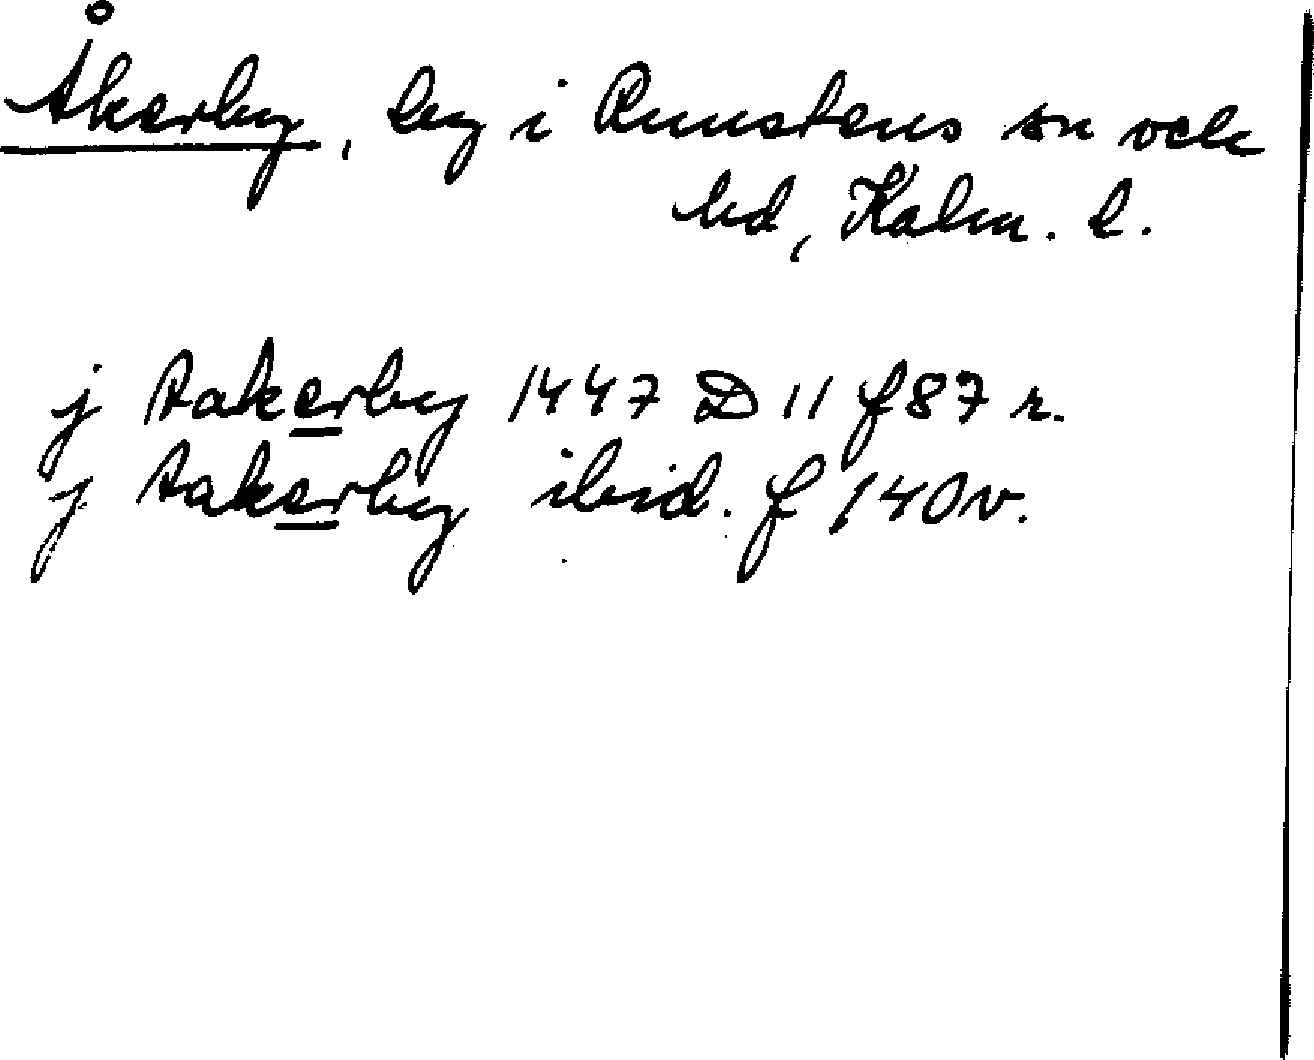 Åkerby, by i Runstens sn och
hd, Kalm. l.
j Aakerby 1447 D 11 f 87 r.
j Aakerby ibid. f 140 v.